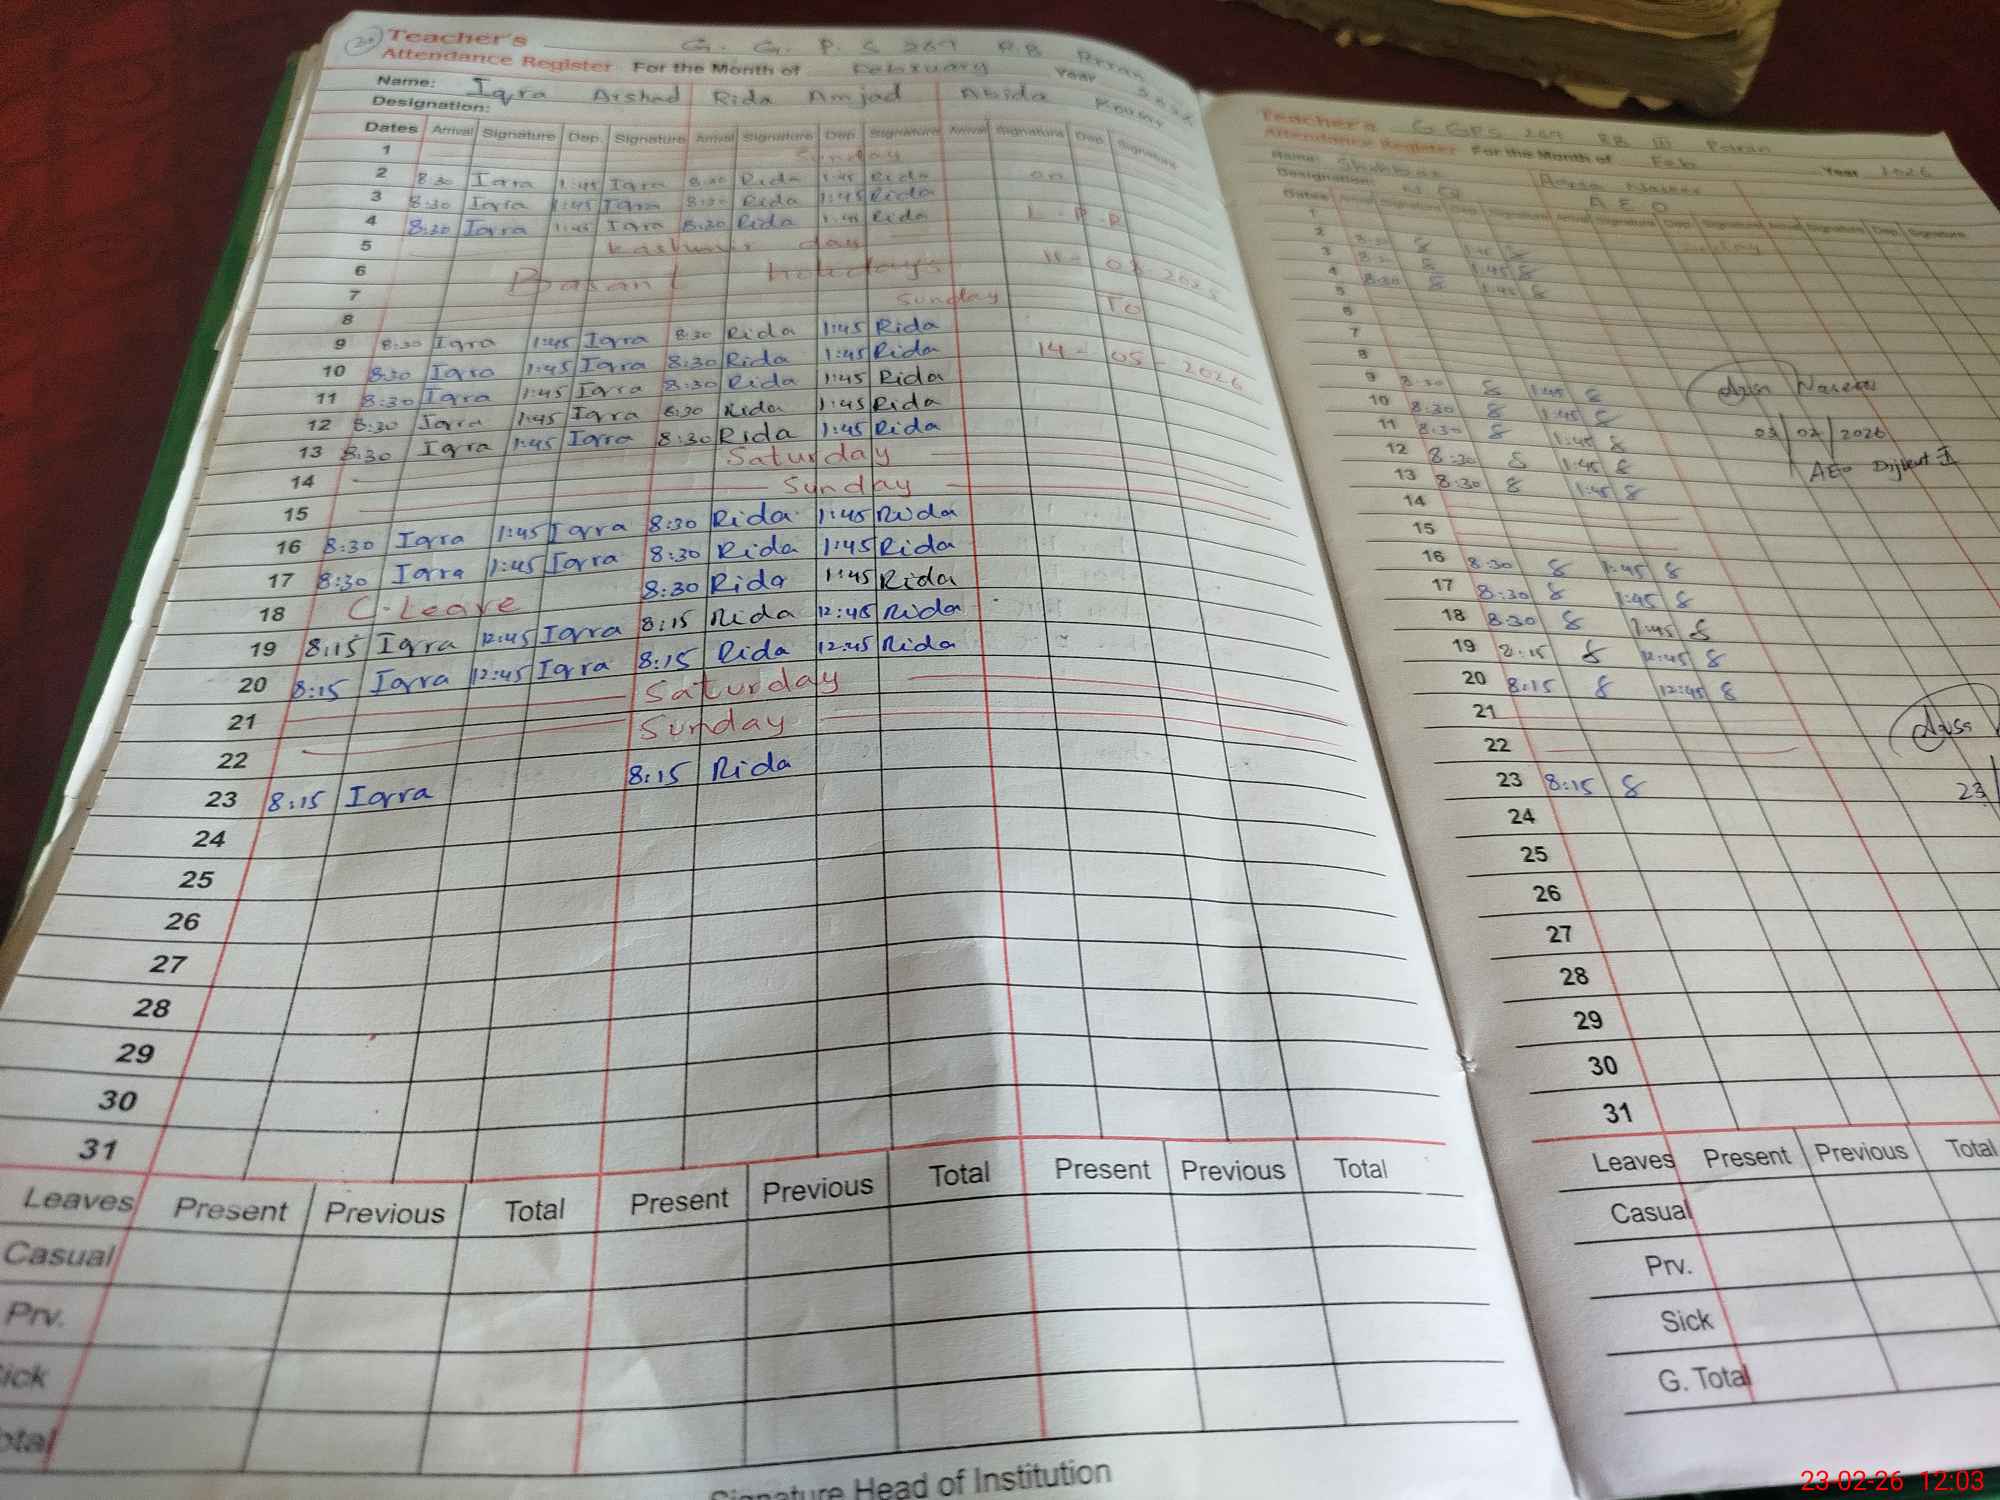 Teacher's G. G. P. S 269 R.B
Attendance Register For the Month of February Year 2026
Name: Iqra Arshad Rida Amjad Abida
Designation:
Dates Arrival Signature Dep. Signature Arrival Signature Dep. Signature Arrival Signature Dep. Signature
1 Sunday
2 8:30 Iqra 1:45 Iqra 8:30 Rida 1:45 Rida on
3 8:30 Iqra 1:45 Iqra 8:30 Rida 1:45 Rida
4 8:30 Iqra 1:45 Iqra 8:30 Rida 1:45 Rida L.P.R
5 Kashmir day
6 Basant holidays
7
8 Sunday To
9 8:30 Iqra 1:45 Iqra 8:30 Rida 1:45 Rida
10 8:30 Iqra 1:45 Iqra 8:30 Rida 1:45 Rida 14-05-2026
11 8:30 Iqra 1:45 Iqra 8:30 Rida 1:45 Rida
12 8:30 Iqra 1:45 Iqra 8:30 Rida 1:45 Rida
13 8:30 Iqra 1:45 Iqra 8:30 Rida 1:45 Rida
14 Saturday
15 Sunday
16 8:30 Iqra 1:45 Iqra 8:30 Rida 1:45 Rida
17 8:30 Iqra 1:45 Iqra 8:30 Rida 1:45 Rida
18 C-Leave 8:30 Rida 1:45 Rida
19 8:15 Iqra 12:45 Iqra 8:15 Rida 12:45 Rida
20 8:15 Iqra 12:45 Iqra 8:15 Rida 12:45 Rida
21 Saturday
22 Sunday
23 8:15 Iqra 8:15 Rida
24
25
26
27
28
29
30
31
Leaves Present Previous Total Present Previous Total Present Previous Total
Casual
Prv.
Sick
Total
Signature Head of Institution
Teacher's G GPS 269 RB III
Attendance Register For the Month of Feb Year 2026
Name:
Designation: AEO
Dates Arrival Signature Dep. Signature Arrival Signature Dep. Signature Arrival Signature Dep. Signature
1 Sunday
2 8:30 1:45
3 8:30 1:45
4 8:30 1:45
5
6
7
8
9 8:30 1:45 Naseem
10 8:30 1:45
11 8:30 1:45 03/02/2026
12 8:30 1:45 AEO
13 8:30 1:45
14
15
16 8:30 1:45
17 8:30 1:45
18 8:30 1:45
19 8:15 12:45
20 8:15 12:45
21
22
23 8:15 23
24
25
26
27
28
29
30
31
Leaves Present Previous Total
Casual
Prv.
Sick
G. Total
23-02-26 12:03